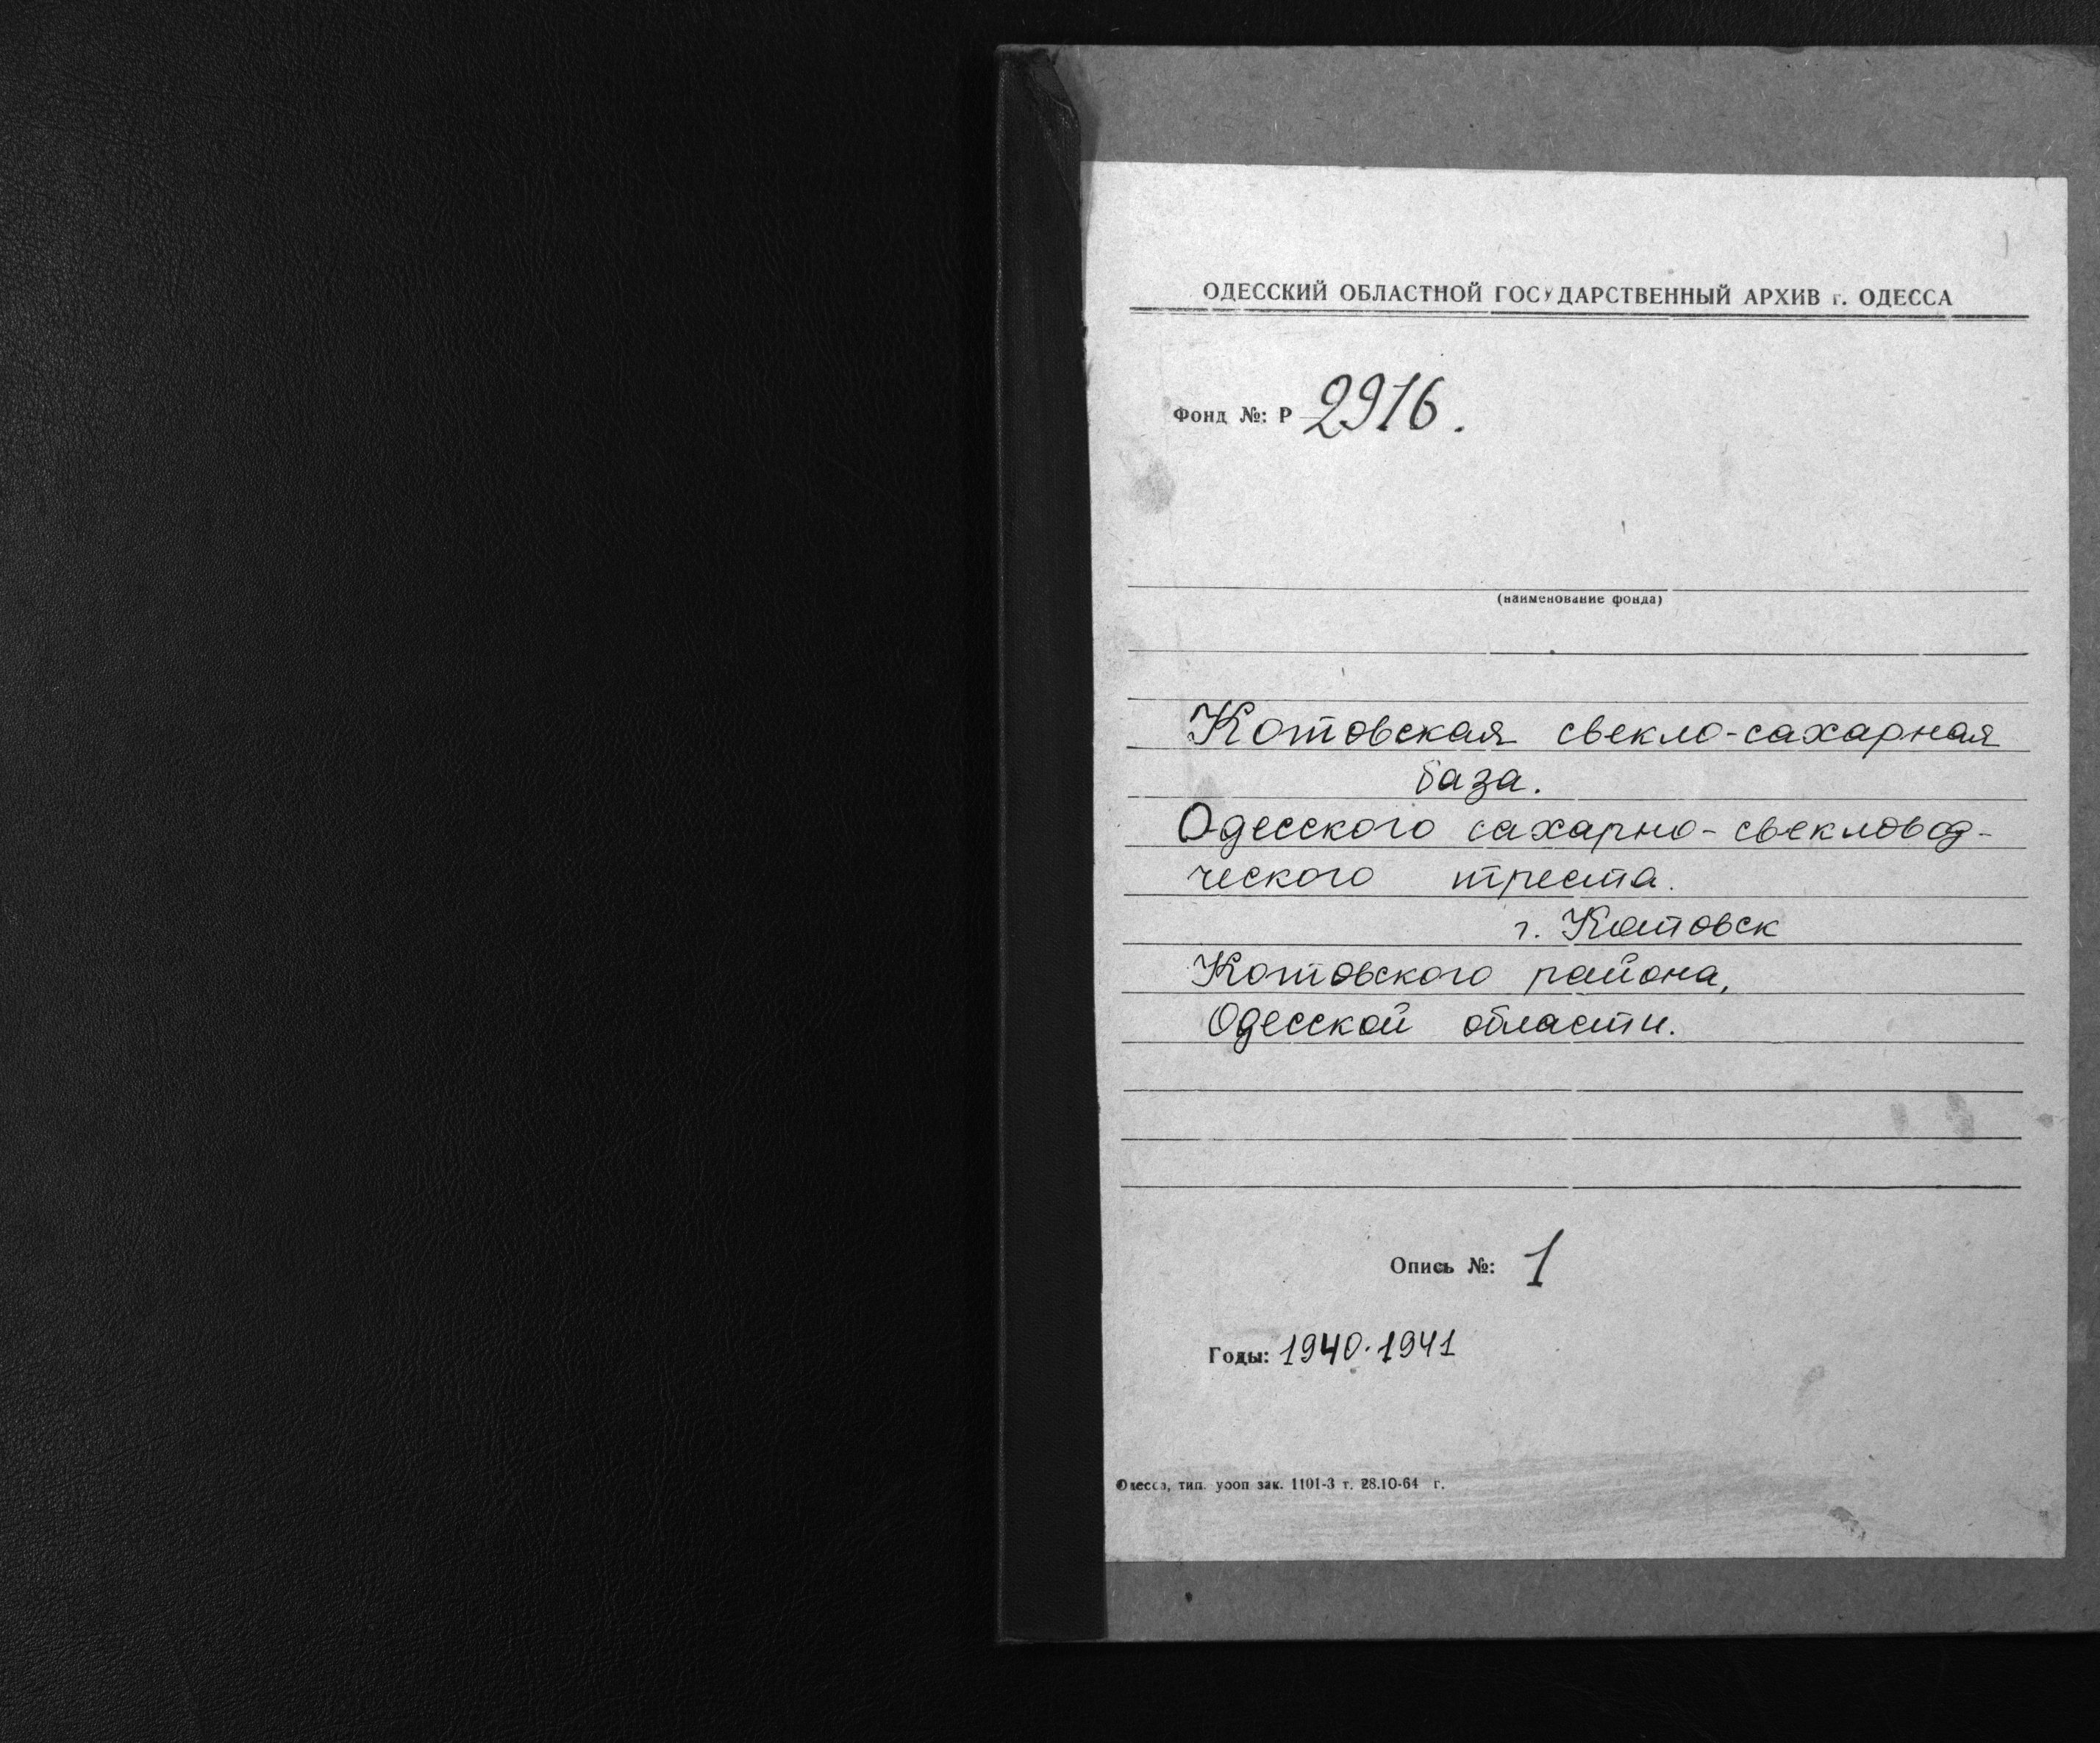 ОДЕССКИЙ ОБЛАСТНОЙ ГОСУДАРСТВЕННЫЙ АРХИВ г. ОДЕССА
Фонд №: Р 2916.
(наименование фонда)
Котовская свекло-сахарная
база.
Одесского сахарно-свекловод-
ческого треста.
г. Котовск
Котовского района,
Одесской области.
Опись №: 1
Годы: 1940-1941
Одесса, тип. уооп зак. 1101-3 т. 28.10-64 г.